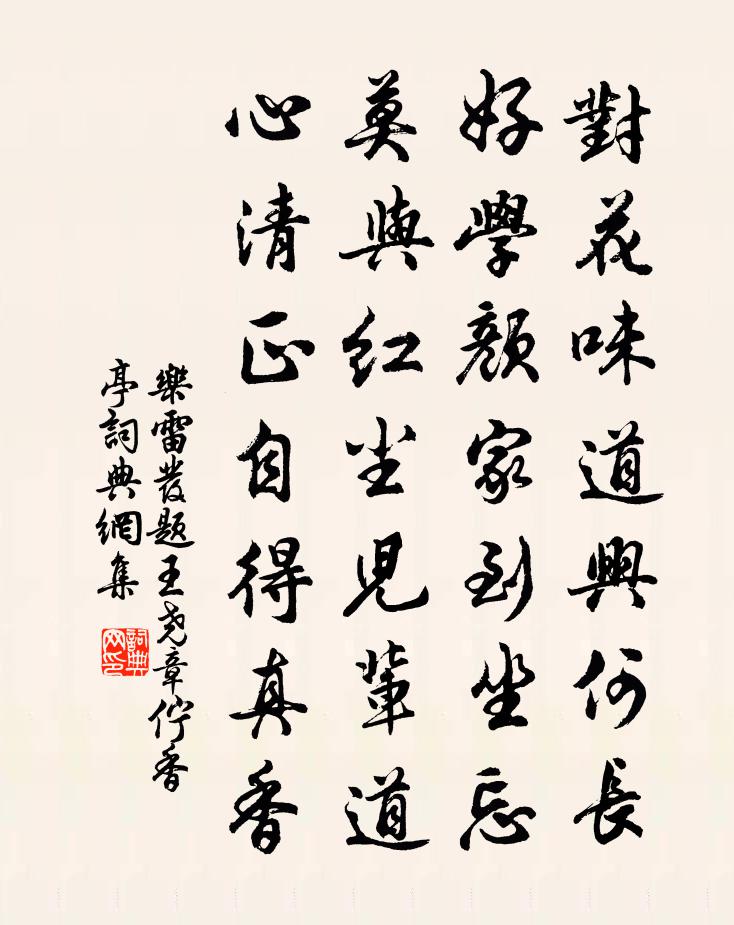 對花味道興何長
好學顏家到坐忘
莫與紅塵兒輩道
心清正自得真香
樂雷發題王堯章佇香
亭詞典網集
詞典
网印